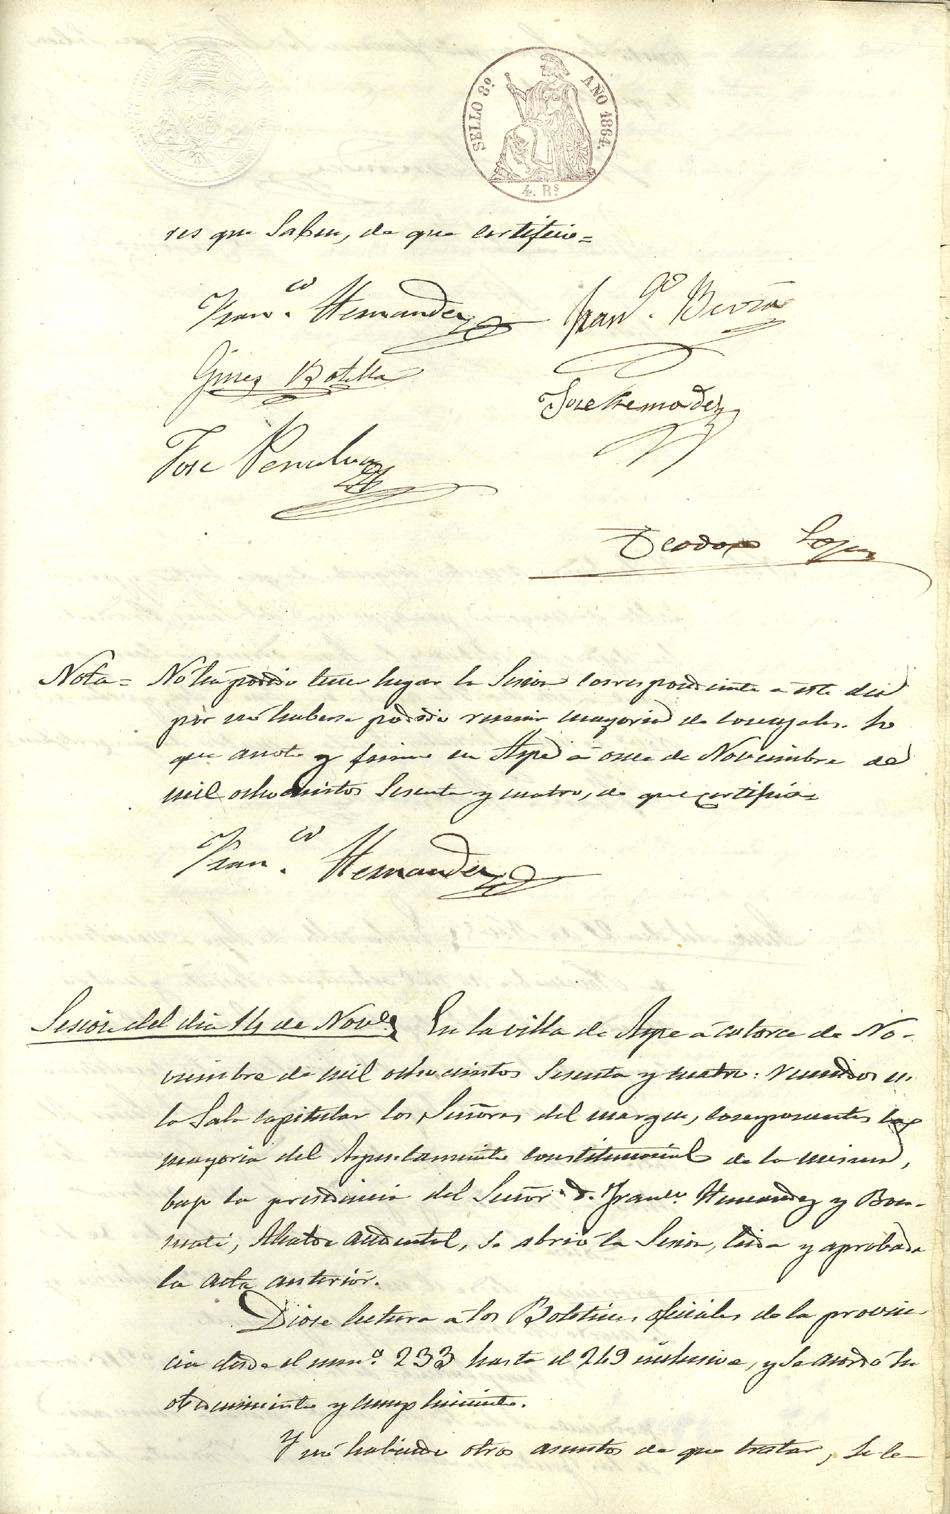 SELLO 8º AÑO 1864.
4. Rs
res que saben, de que certifico=
Franco. Hernandez
Franco.
Gines Botella
Jose Hernandez
Jose
Teodoro Lopez
Nota= No há podido tener lugar la Sesion correspondiente á este dia
por no haberse podido reunir mayoria de concejales. Lo
que anoto y firmo en Aspe á once de Noviembre de
mil ochocientos sesenta y cuatro, de que certifico=
Franco. Hernandez
Sesion del dia 14 de Nove. En la villa de Aspe á catorce de No-
viembre de mil ochocientos sesenta y cuatro: reunidos en
la Sala capitular los Señores del margen, componentes la
mayoria del Ayuntamiento constitucional de la misma,
bajo la presidencia del Señor D. Franco. Hernandez y Bon-
mati, Alcalde accidental, se abrió la Sesion, leida y aprobada
la acta anterior.
Diose lectura á los Boletines oficiales de la provin-
cia desde el num.º 233 hasta el 249 inclusive, y se acordó su
obedecimiento y cumplimiento.
Y no habiendo otros asuntos de que tratar, se le-